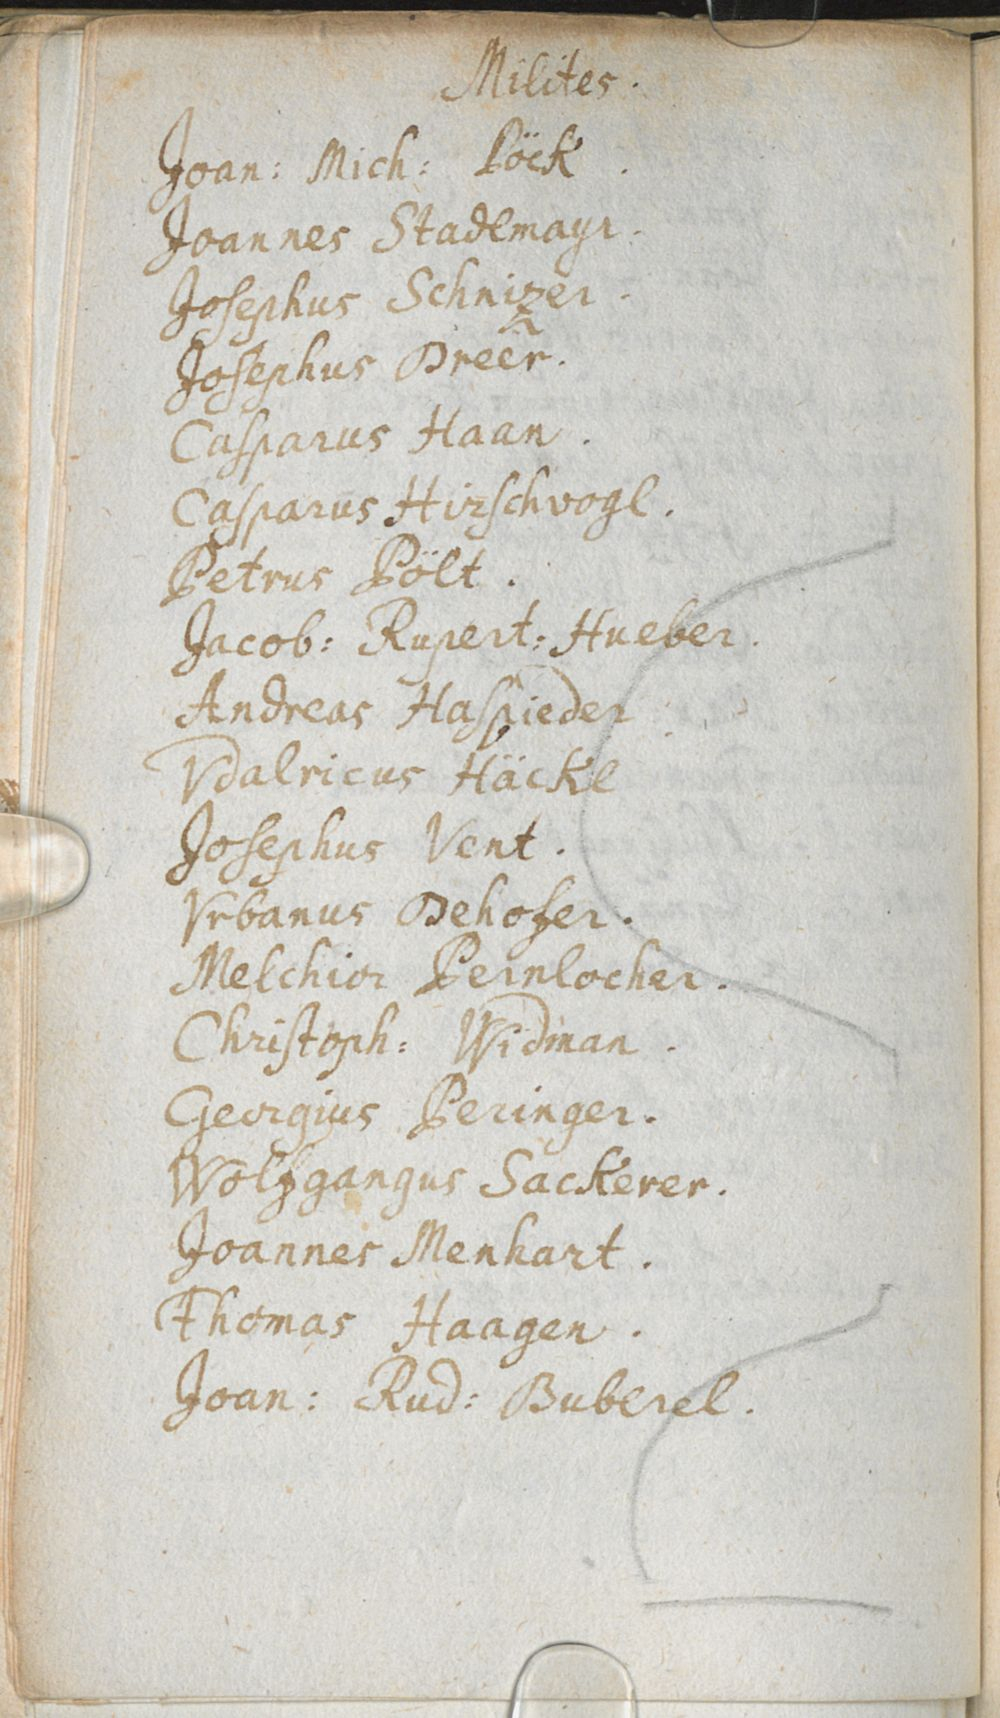 Milites.
Joan: Mich: Pöck.
Joannes Stadlmayr.
Josephus Schnizer.
Josephus Dreer.
Casparus Haan.
Casparus Hirschvogl.
Petrus Pölt.
Jacob: Rupert: Hueber.
Andreas Haspieder
Vdalricus Häckl
Josephus Vent.
Vrbanus Dehofer.
Melchior Pernlocher.
Christoph: Widman.
Georgius Peringer.
Wolfgangus Sackerer.
Joannes Menhart.
Thomas Haagen.
Joan: Rud: Buberel.